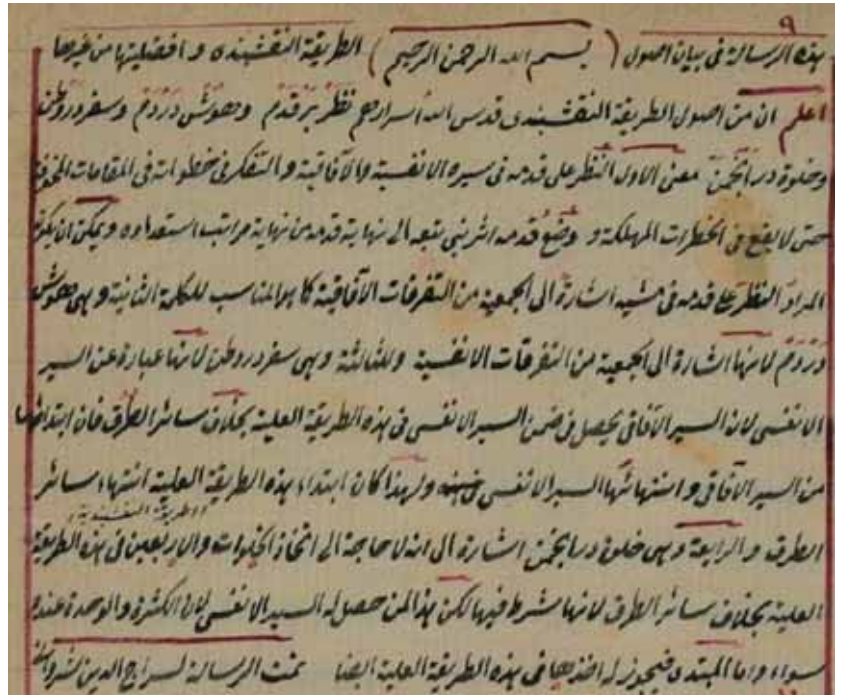 ٩
هذه الرسالة فى بيان اصول ( بسم الله الرحمن الرحيم ) الطريقة النقشبنده و افضليتها من غيرها
اعلم ان من اصول الطريقة النقشبندى قدس الله اسرارهم نظر بر قدم وهوش دردم وسفر در وطن
وخلوة در انجمن معنى الاول النظر على قدمه فى سيره الانفسية والآفاقية والتفكر فى خطواته فى المقامات المخوفة
حتى لا يقع فى الخطرات المهلكة و وضع قدمه اثر نبى يتبعه الى نهاية قدمه من نهاية مراتب استعداده ويمكن ان يكون
المراد النظر على قدمه فى مشيه اشارة الى الجمعية من التفرقات الآفاقية كما هو المناسب للكلمة الثانية وهى هوش
دردم لانها اشارة الى الجمعية من التفرقات الانفسية وللثالثة وهى سفر در وطن لانها عبارة عن السير
الانفسى لان السير الآفاقى يحصل فى ضمن السير الانفسى فى هذه الطريقة العلية بخلاف سائر الطرق فان ابتدائها
من السير الآفاقى و انتهائها السير الانفسى ولهذا كان ابتداء هذه الطريقة العلية انتهاء سائر
الطرق والرابعة وهى خلوة در انجمن اشارة الى انه لا حاجة الى اتخاذ الخلوات والاربعين فى هذه الطريقة
العلية بخلاف سائر الطرق لانها شرط فيها لكن هذا لمن حصل له السير الانفسى لان الكثرة والوحدة عنده
سواء واما المبتدى فيجوز له اخذها فى هذه الطريقة العلية ايضا تمت الرسالة لسراج الدين